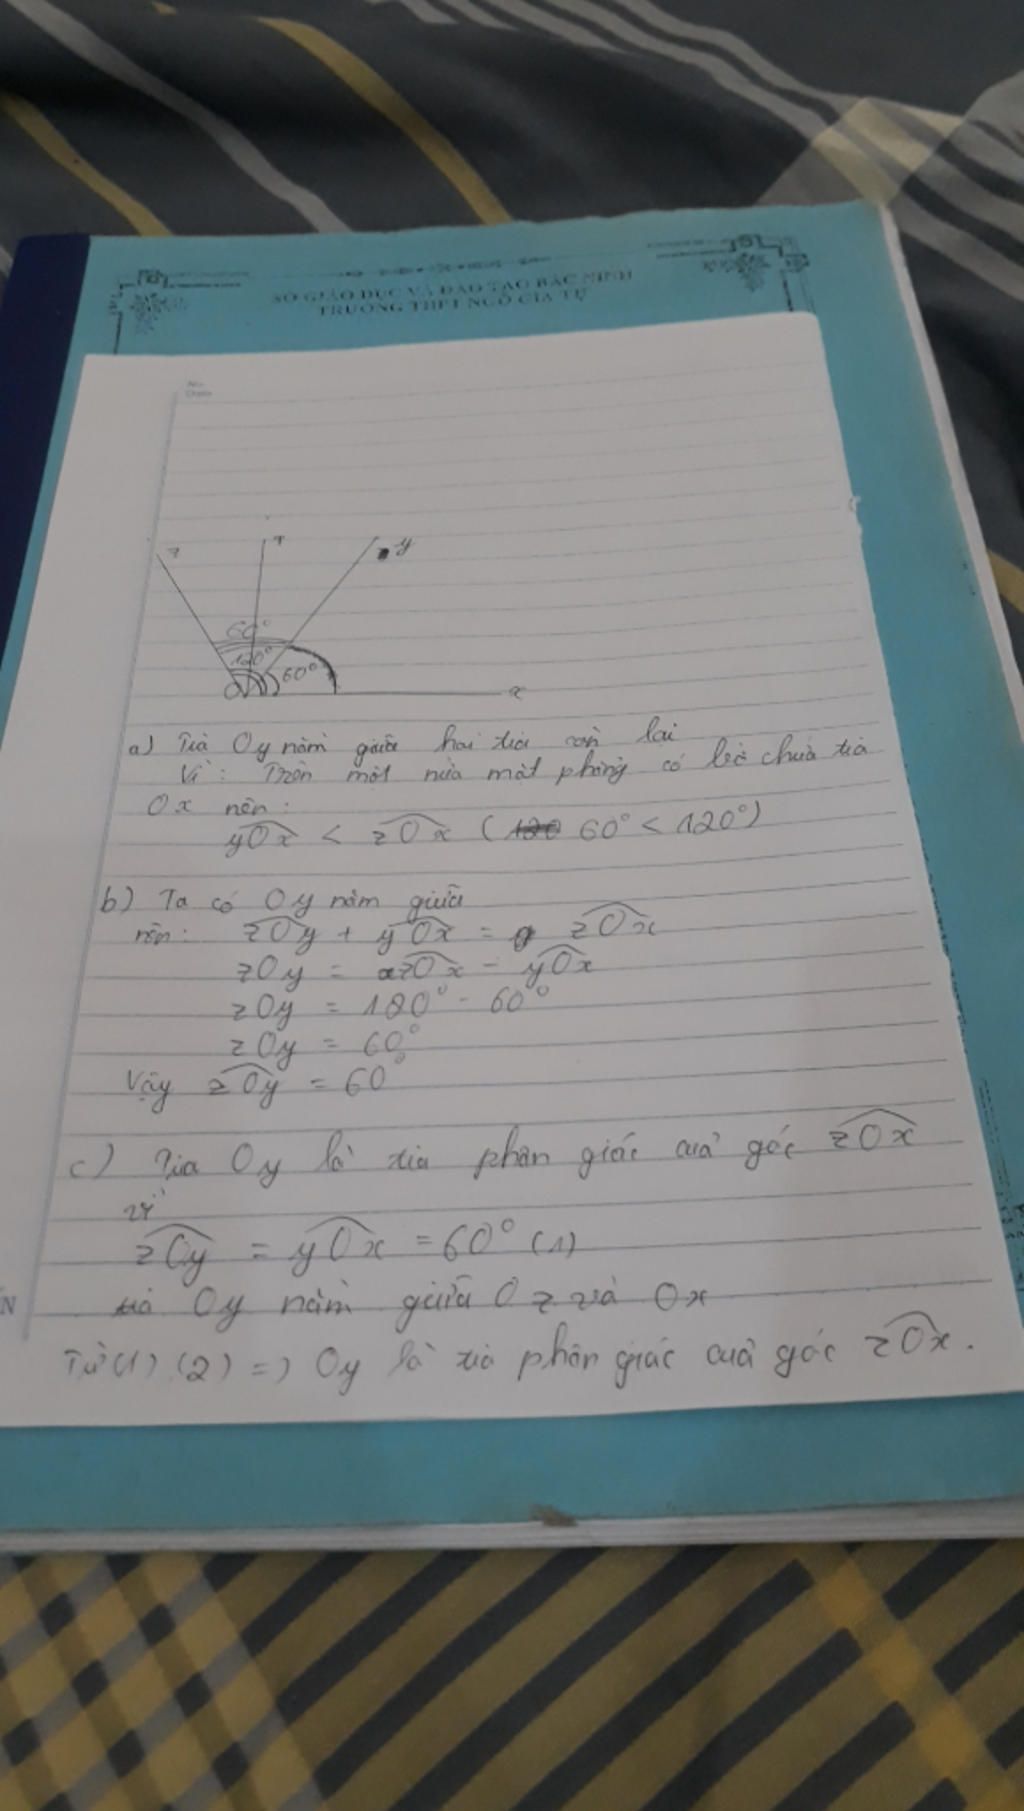 SỞ GIÁO DỤC VÀ ĐÀO TẠO BẮC NINH
TRƯỜNG THPT NGÔ GIA TỰ
No.
Date
z
T
y
60°
120°
60°
O
x
a) Tia Oy nằm giữa hai tia còn lại
Vì: Trên một nửa mặt phẳng có bờ chứa tia
Ox nên:
yOx < zOx ( 60° < 120°)
b) Ta có Oy nằm giữa
nên: zOy + yOx = zOx
zOy = zOx - yOx
zOy = 120° - 60°
zOy = 60°
Vậy zOy = 60°
c) Tia Oy là tia phân giác của góc zOx
vì
zOy = yOx = 60° (1)
tia Oy nằm giữa Oz và Ox
Từ (1), (2) => Oy là tia phân giác của góc zOx.